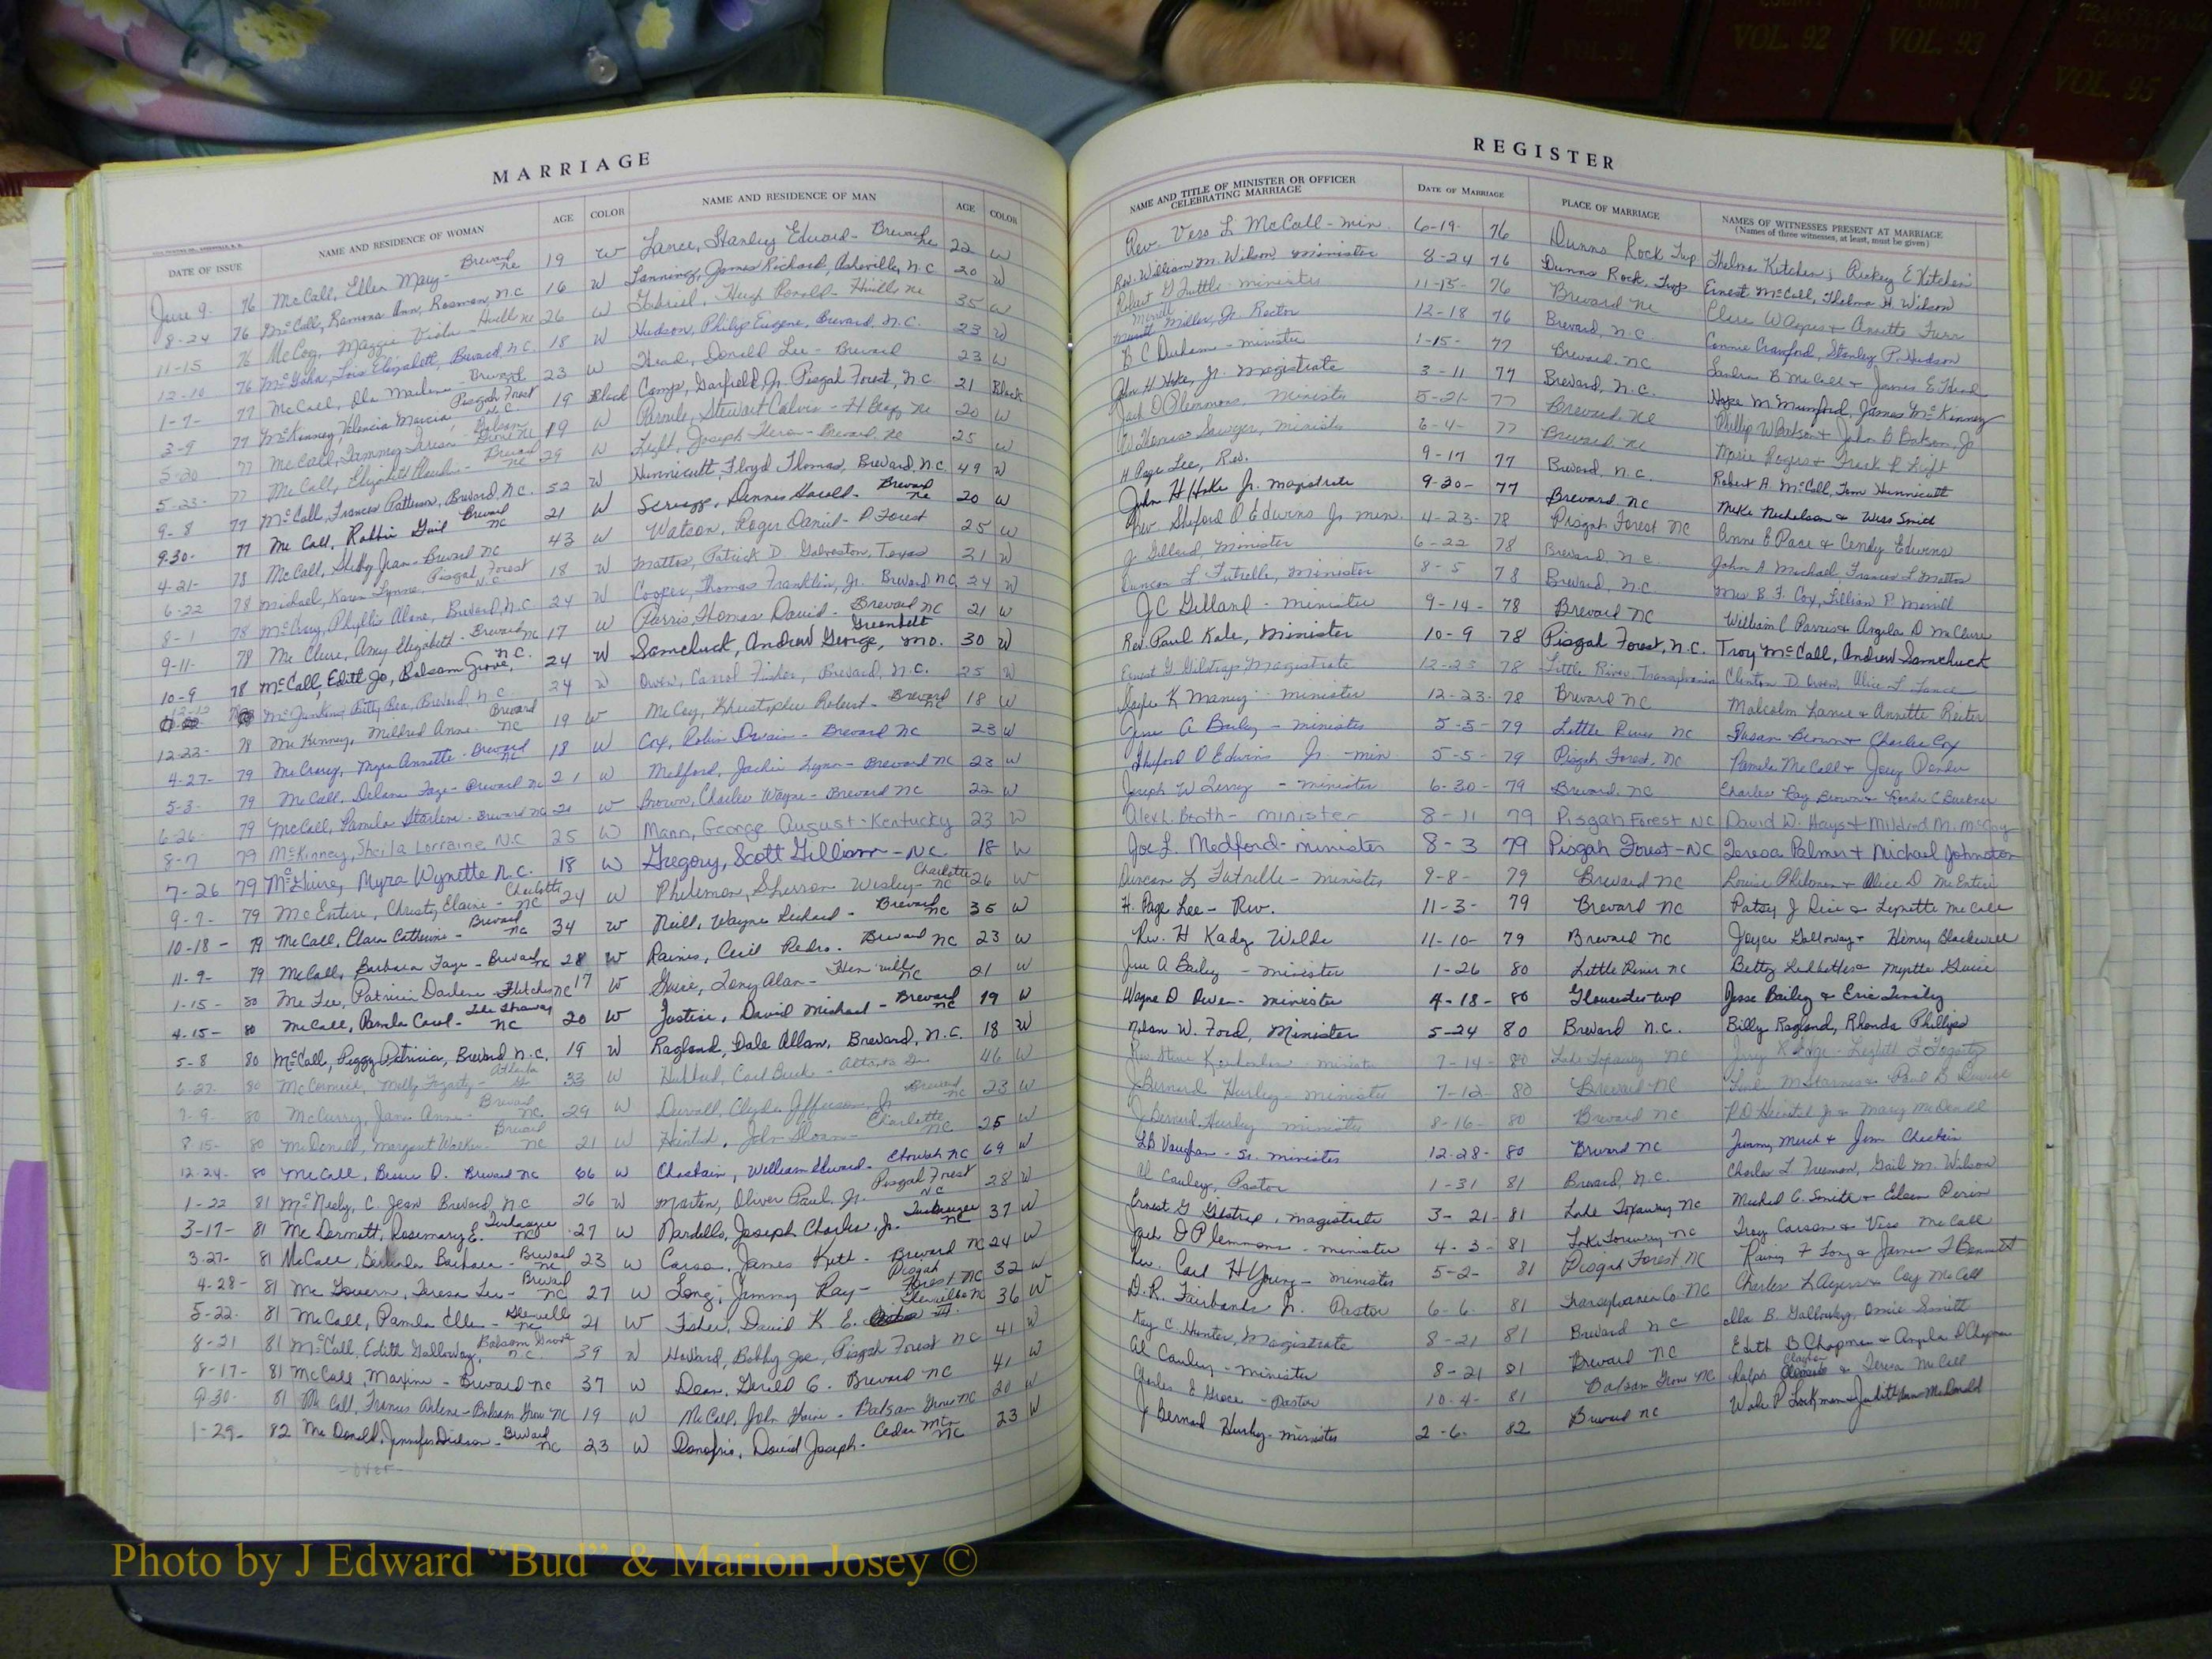 VOL. 91
VOL. 92
VOL. 93
VOL. 95
MARRIAGE
DATE OF ISSUE NAME AND RESIDENCE OF WOMAN AGE COLOR NAME AND RESIDENCE OF MAN AGE COLOR
June 9- 76 McCall, Ellen Mary- Brevard NC 19 W Lance, Stanley Edward- Brevard NC 22 W
8-24 76 McCall, Ramona Ann, Rosman, N.C 16 W Lanning, James Richard, Asheville, N.C 20 W
11-15 76 McCoy, Maggie Viola - Hville NC 26 W Gabriel, Hugh Ronald- Hville NC 35 W
12-10 76 McGaha, Lois Elizabeth, Brevard, N.C. 18 W Hudson, Philip Eugene, Brevard, N.C. 23 W
1-7- 77 McCall, Ola Marlene- Brevard 23 W Head, Donald Lee - Brevard 23 W
3-9 77 McKinney, Valencia Marcia, Pisgah Forest N.C. 19 Black Camp, Garfield, Jr. Pisgah Forest, N.C 21 Black
5-20 77 McCall, Tammy 19 W Stewart Calvin - NC 20 W
5-23- 77 McCall, Elizabeth - Brevard NC 29 W Light, Joseph - Brevard, NC 25 W
9-8 77 McCall, Frances Patterson, Brevard, N.C. 52 W Hunnicutt, Floyd Thomas, Brevard, N.C. 49 W
9-30- 77 McCall, Robbin Gail Brevard NC 21 W Scruggs, Dennis Harold- Brevard NC 20 W
4-21- 78 McCall, Shelby Jean- Brevard NC 43 W Watson, Roger Daniel- P. Forest 25 W
6-22 78 Michael, Karen Lynne, Pisgah Forest N.C. 18 W Mattox, Patrick D. Galveston, Texas 21 W
8-1 78 McCrary, Phyllis Alane, Brevard, N.C 24 W Cooper, Thomas Franklin, Jr. Brevard NC 24 W
9-11- 78 McClure, Amy Elizabeth - Brevard NC 17 W Parris, Thomas David - Brevard NC 21 W
10-9 78 McCall, Edith Jo, Balsam Grove, N.C. 24 W Samchuck, Andrew George, Greenbelt MO. 30 W
McJunkins, Betty Rea, Brevard, N.C 24 W Owen, Carrol Fisher, Brevard, N.C. 25 W
12-22- 78 McKinney, Mildred Anne- Brevard NC 19 W McCoy, Khristopher Robert- Brevard NC 18 W
4-27- 79 McCrary, Myra Annette- Brevard NC 18 W Cox, Robin Dwain - Brevard NC 23 W
5-3- 79 McCall, Delane Faye- Brevard NC 21 W Medford, Jackie Lynn- Brevard NC 23 W
6-26- 79 McCall, Pamela Starlene- Brevard NC 21 W Brown, Charles Wayne- Brevard NC 22 W
8-7 79 McKinney, Sheila Lorraine N.C 25 W Mann, George August-Kentucky 23 W
7-26 79 McGuire, Myra Wynette N.C. 18 W Gregory, Scott Gilliam- NC 18 W
9-7- 79 McEntire, Christy Elaine - Charlotte NC 24 W Philemon, Sherron Wesley- Charlotte NC 26 W
10-18- 79 McCall, Clara Catherine- Brevard NC 34 W Neill, Wayne Richard - Brevard NC 35 W
11-9- 79 McCall, Barbara Faye - Brevard NC 28 W Raines, Cecil Pedro. Brevard NC 23 W
1-15- 80 McFee, Patricia Darlene- Fletcher NC 17 W Guice, Tony Alan- NC 21 W
4-15- 80 McCall, Pamela Carol- Lake Toxaway NC 20 W Justice, David Michael- Brevard NC 19 W
5-8 80 McCall, Peggy Patricia, Brevard N.C, 19 W Ragland, Dale Allan, Brevard, N.C. 18 W
6-27- 80 McCormick, Molly Fogarty- Atlanta Ga 33 W Hubbard, Carl Buck - Atlanta Ga 46 W
7-9- 80 McCurry, Jane Anne- Brevard NC 29 W Duvall, Clyde Jefferson Jr Brevard NC 23 W
8-15- 80 McDonald, Margaret Walker- Brevard NC 21 W John Sloan- Charlotte NC 25 W
12-24- 80 McCall, Bessie O. Brevard NC 66 W Chastain, William Edward- NC 69 W
1-22 81 McNeely, C. Jean Brevard, N.C 26 W Morton, Oliver Paul, Jr. Pisgah Forest NC 28 W
3-17- 81 McDermott, Rosemary E. Tuckasegee NC 27 W Nardello, Joseph Charles, Jr. Tuckasegee NC 37 W
3-27- 81 McCall, Belinda Barbara- Brevard NC 23 W Carson, James Keith - Brevard NC 24 W
4-28- 81 McGovern, Teresa Lee- Brevard NC 27 W Long, Jimmy Ray- Pisgah Forest NC 32 W
5-22- 81 McCall, Pamela Ellen - NC 21 W Fisher, David K. E. III. 36 W
8-21 81 McCall, Edith Galloway, Balsam Grove N.C. 39 W Howard, Bobby Joe, Pisgah Forest NC 41 W
8-17- 81 McCall, Maxine - Brevard NC 37 W Dean, Gerald G. Brevard NC 41 W
9-30- 81 McCall, Frances Arlene-Balsam Grove NC 19 W McCall, John - Balsam Grove NC 20 W
1-29- 82 McDonald, Jennifer Dickson- Brevard NC 23 W Donofrio, David Joseph- Cedar Mtn NC 23 W
- over -
REGISTER
NAME AND TITLE OF MINISTER OR OFFICER CELEBRATING MARRIAGE DATE OF MARRIAGE PLACE OF MARRIAGE NAMES OF WITNESSES PRESENT AT MARRIAGE
(Names of three witnesses, at least, must be given)
Rev. Vess L. McCall - min. 6-19- 76 Dunns Rock Twp Thelma Kitchen; Rickey E Kitchen
Rev. William M. Wilson minister 8-24 76 Dunns Rock, Twp Ernest McCall, Thelma H. Wilson
Robert G Tuttle - minister 11-15- 76 Brevard NC Annette Furr
Merrill Miller, Jr. Rector 12-18 76 Brevard, N.C. Connie Crawford, Stanley P. Hudson
B C Durham - minister 1-15- 77 Brevard, NC Sandra B McCall + James E. Head
John H Hoke, Jr. Magistrate 3-11 77 Brevard, N.C. Hope M Mumford, James McKinney
Jack D Plemmons, Minister 5-21- 77 Brevard, NC Phillip W Batson + John B Batson, Jr
Sawyer, Minister 6-4- 77 Brevard NC
H Page Lee, Rev. 9-17 77 Brevard N.C. Robert A. McCall, Tom Hunnicutt
John H Hoke Jr. magistrate 9-30- 77 Brevard NC Mike Nicholson & Wess Smith
Rev Sheford O Edwins Jr min. 4-23- 78 Pisgah Forest NC Anne E Pace & Cendy Edwins
Gilland, Minister 6-22 78 Brevard, N.C. John A Michael, Frances L Mattox
Duncan L Futrelle, Minister 8-5 78 Brevard, N.C. Mrs B. F. Cox, Lillian P. Merrill
J C Gilland - minister 9-14- 78 Brevard NC William C Parris + Angela D McClure
Rev. Paul Kale, Minister 10-9 78 Pisgah Forest, N.C. Troy McCall, Andrew Samchuck
Ernest G Gilstrap Magistrate 12-23 78 Little River, Transylvania Clinton D. Owen, Alice L Lance
K Maney - minister 12-23- 78 Brevard NC Malcolm Lance + Annette Reiter
Jesse A Bailey - minister 5-5- 79 Little River NC Susan Brown + Charles Cox
Sheford O Edwins Jr. - min 5-5- 79 Pisgah Forest, NC Pamela McCall & Joey
Joseph W Terry - minister 6-30- 79 Brevard, NC Charles Ray Brown + Ronda C Buckner
Alex L. Booth - minister 8-11 79 Pisgah Forest NC David W. Hays + Mildred M. McCoy
Joe L. Medford- minister 8-3 79 Pisgah Forest-NC Teresa Palmer + Michael Johnston
Duncan L Futrelle- minister 9-8- 79 Brevard NC Louise Philemon + Alice D McEntire
H. Page Lee - Rev. 11-3- 79 Brevard NC Patsy J Rice & Lynette McCall
Rev. H Kadz Wilde 11-10- 79 Brevard NC Joyce Galloway + Henry Blackwell
Jesse A Bailey - minister 1-26 80 Little River NC Betty Ledbetter + Myrtle Guice
Wayne D Owen- minister 4-18- 80 Gloucester twp Jesse Bailey & Eric Tinsley
Nolan W. Ford, Minister 5-24 80 Brevard N.C. Billy Ragland, Rhonda Phillips
7-14- 80 Lake Toxaway NC
J Bernard Hurley- minister 7-12- 80 Brevard NC
J Bernard Hurley minister 8-16- 80 Brevard NC Mary McDonald
L B Vaughan - Sr. minister 12-28- 80 Brevard NC Jimmy + Jim Chastain
Al Cauley, Pastor 1-31 81 Brevard, N.C. Charles L Freeman, Gail M. Wilson
Ernest G Gilstrap, magistrate 3-21- 81 Lake Toxaway NC Michael C. Smith + Eileen
Jack D Plemmons - minister 4-3- 81 Lake Toxaway NC Troy Carson + Vera McCall
Rev. Carl H Young- minister 5-2- 81 Pisgah Forest NC Rainey F Long & James T Bennett
D. R. Fairbanks Jr. Pastor 6-6- 81 Transylvania Co. NC Charles L + Coy McCall
Kay C Hunter, Magistrate 8-21 81 Brevard N C Ella B. Galloway, Smith
Al Cauley - minister 8-21 81 Brevard NC Edith B Chapman + Angela D Chapman
Charles E Grace - Pastor 10-4- 81 Balsam Grove NC Ralph & Teresa McCall
J Bernard Hurley- minister 2-6- 82 Brevard NC
Photo by J Edward "Bud" & Marion Josey ©